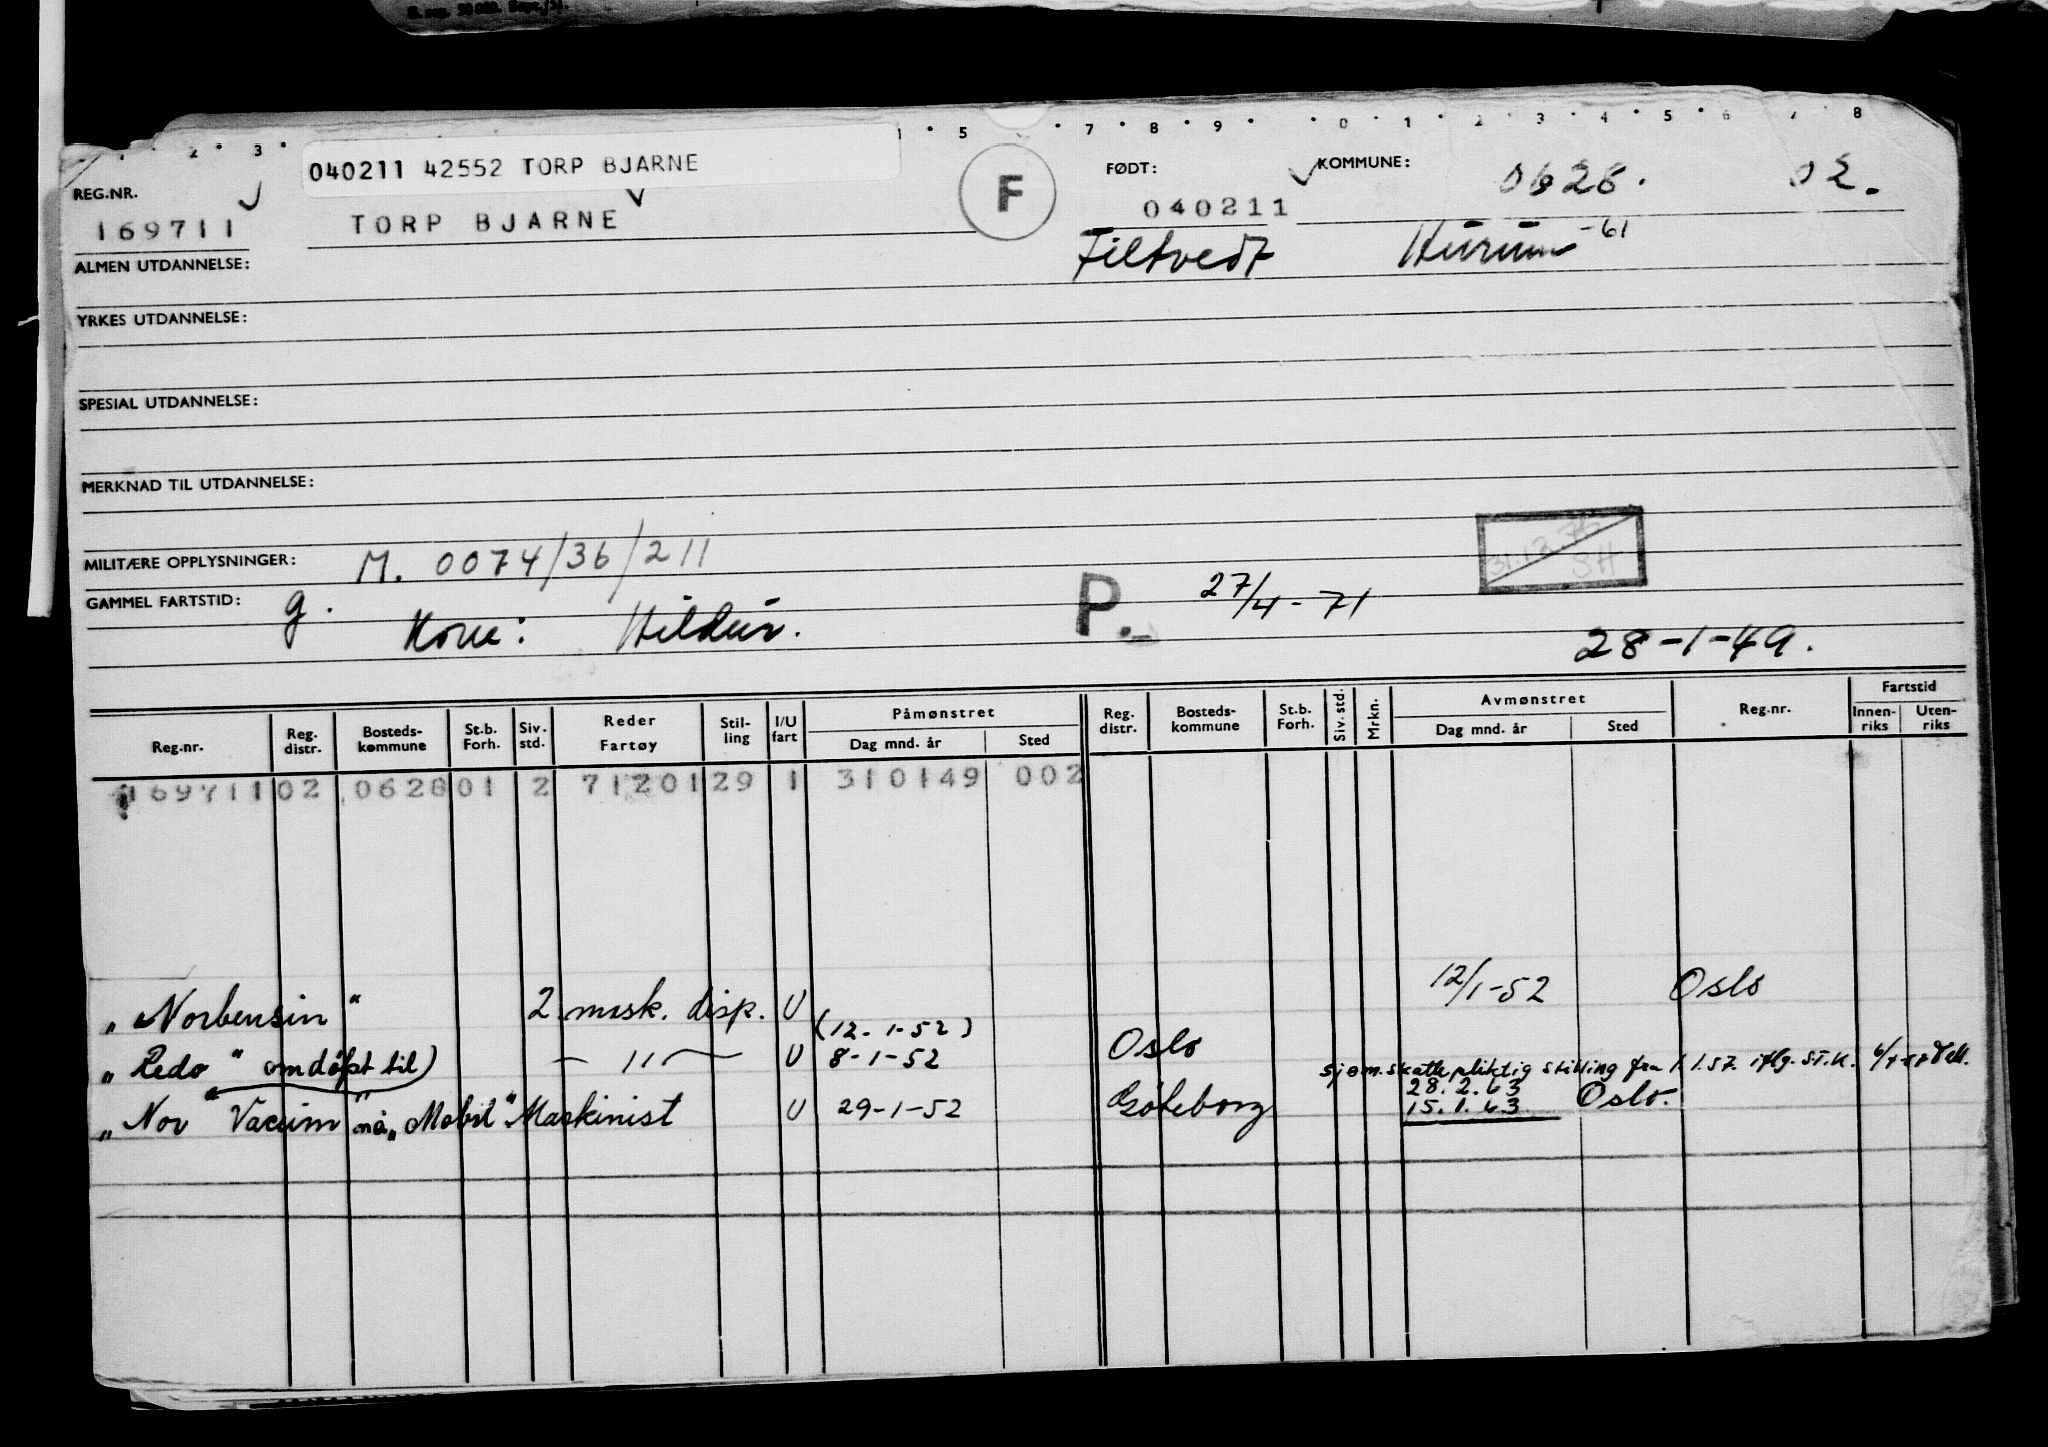 1 2 3 5 7 8 9 0 1 2 3 4 5 6 7 8
040211 42552 TORP BJARNE
REG.NR.
169711
TORP BJARNE
F
FØDT:
040211
KOMMUNE:
0628. 02.
Filtvedt
Hurum -61
ALMEN UTDANNELSE:
YRKES UTDANNELSE:
SPESIAL UTDANNELSE:
MERKNAD TIL UTDANNELSE:
MILITÆRE OPPLYSNINGER: M. 0074/36/211
31.12.75 SH
GAMMEL FARTSTID: g.
Kone: Hildur.
P. 27/4-71
28-1-49.
Reg.nr. Reg. distr. Bosteds-kommune St.b. Forh. Siv. std. Reder Fartøy Stil-ling I/U fart Påmønstret Dag mnd. år Sted Reg. distr. Bosteds-kommune St.b. Forh. Siv. std. Mrkn. Avmønstret Dag mnd. år Sted Reg.nr. Fartstid Innen-riks Uten-riks
169711 02 0628 01 2 71201 29 1 310149 002
„Norbensin" 2 mask. disp. U 12/1-52 Oslo
(12-1-52)
„Redo" omdöpt til) — 11 — U 8-1-52 Oslo
sjøm.skattepliktig stilling fra 1.1.57. iflg. ST.K.
28.2.63
„Nor Vacuum" nå „Mobil" Maskinist U 29-1-52 Göteborg 15.1.63 Oslo.